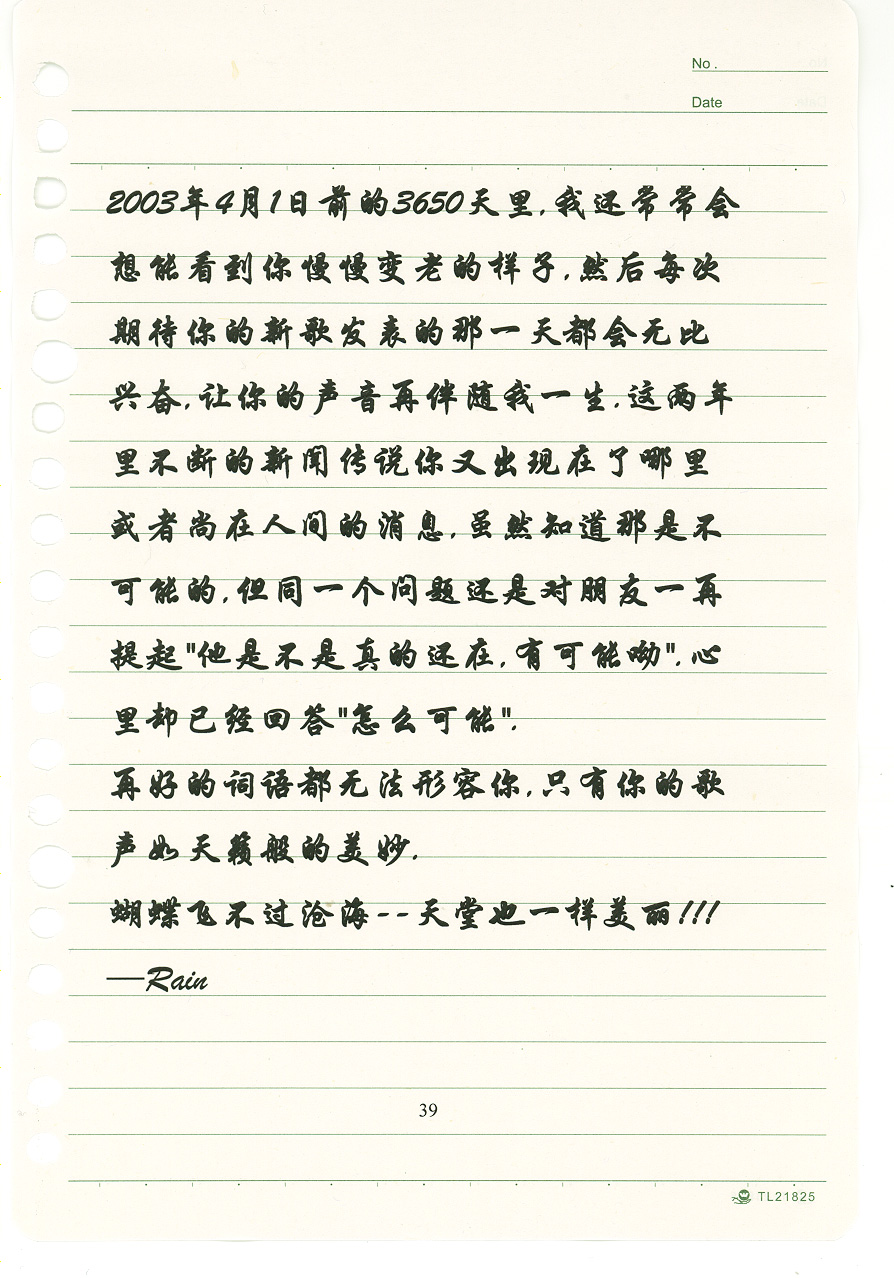 No .
Date
2003年4月1日前的3650天里,我还常常会
想能看到你慢慢变老的样子,然后每次
期待你的新歌发表的那一天都会无比
兴奋,让你的声音再伴随我一生,这两年
里不断的新闻传说你又出现在了哪里
或者尚在人间的消息,虽然知道那是不
可能的,但同一个问题还是对朋友一再
提起"他是不是真的还在,有可能呦",心
里却已经回答"怎么可能".
再好的词语都无法形容你,只有你的歌
声如天籁般的美妙.
蝴蝶飞不过沧海--天堂也一样美丽!!!
—Rain
39
TL21825